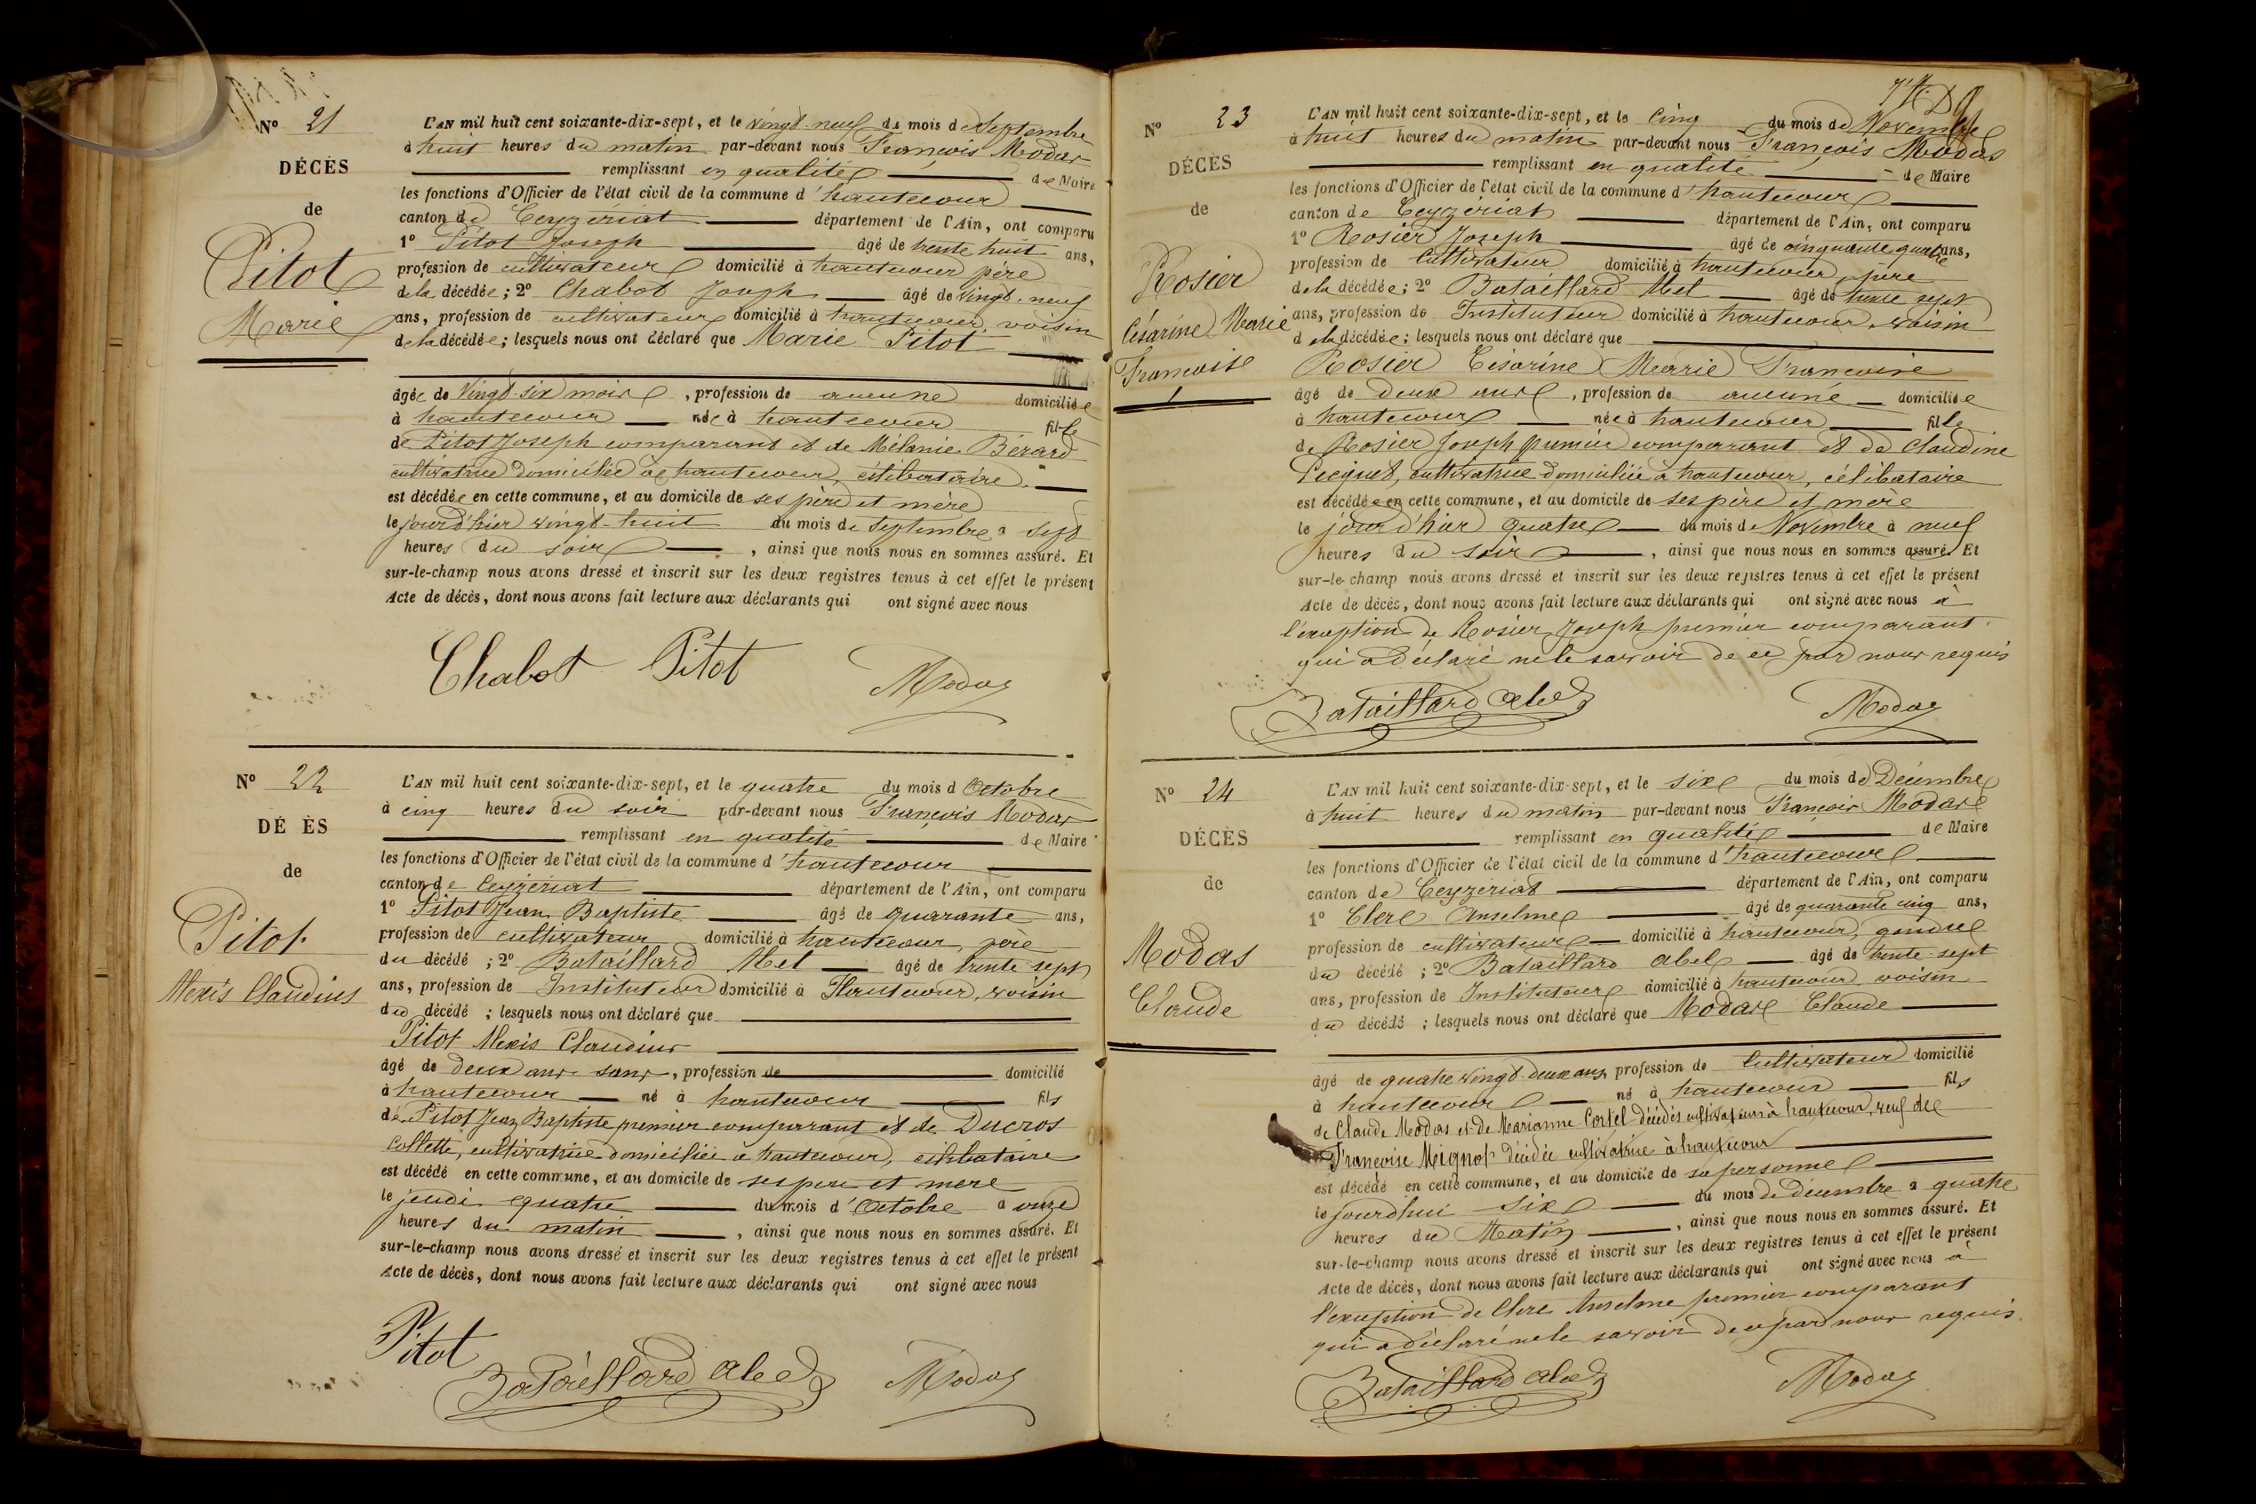 N° 21
DÉCÈS
de
Pitot
Marie
L'AN mil huit cent soixante-dix-sept, et le vingt-neuf du mois de Septembre
à huit heures du matin par-devant nous François Modas
remplissant en qualité de Maire
les fonctions d'Officier de l'état civil de la commune d'hautecour
canton de Ceyzériat département de l'Ain, ont comparu
1° Pitot Joseph âgé de trente huit ans,
profession de cultivateur domicilié à hautecour père
de la décédée; 2° Chabot Joseph âgé de vingt-neuf
ans, profession de cultivateur domicilié à hautecour, voisin
de la décédée; lesquels nous ont déclaré que Marie Pitot
âgée de vingt-six mois, profession de aucune domiciliée
à hautecour née à hautecour fille
de Pitot Joseph comparant et de Mélanie Bérard
cultivatrice domiciliée à hautecour, célibataire.
est décédée en cette commune, et au domicile de ses père et mère
le jourd'hier vingt-huit du mois de septembre à sept
heures du soir, ainsi que nous nous en sommes assuré. Et
sur-le-champ nous avons dressé et inscrit sur les deux registres tenus à cet effet le présent
Acte de décès, dont nous avons fait lecture aux déclarants qui ont signé avec nous
Chabot Pitot Modas
N° 22
DÉ ÈS
de
Pitot
Alexis Claudius
L'AN mil huit cent soixante-dix-sept, et le quatre du mois d Octobre
à cinq heures du soir par-devant nous François Modas
remplissant en qualité de Maire
les fonctions d'Officier de l'état civil de la commune d'hautecour
canton de Ceyzériat département de l'Ain, ont comparu
1° Pitot Jean Baptiste âgé de quarante ans,
profession de cultivateur domicilié à hautecour, père
du décédé; 2° Bataillard Abel âgé de trente-sept
ans, profession de Instituteur domicilié à Hautecour, voisin
du décédé; lesquels nous ont déclaré que
Pitot Alexis Claudius
âgé de deux ans sans, profession de domicilié
à hautecour né à hautecour fils
de Pitot Jean Baptiste premier comparant et de Ducros
Collette, cultivatrice domiciliée à hautecour, célibataire
est décédé en cette commune, et au domicile de ses père et mère
le jeudi quatre du mois d'Octobre à onze
heures du matin, ainsi que nous nous en sommes assuré. Et
sur-le-champ nous avons dressé et inscrit sur les deux registres tenus à cet effet le présent
Acte de décès, dont nous avons fait lecture aux déclarants qui ont signé avec nous
Pitot
Bataillard Abel Modas
N° 23
DÉCÈS
de
Rosier
Césarine Marie
Francoise
L'AN mil huit cent soixante-dix-sept, et le Cinq du mois de Novembre
à huit heures du matin par-devant nous François Modas
remplissant en qualité de Maire
les fonctions d'Officier de l'état civil de la commune d'hautecour
canton de Ceyzériat département de l'Ain, ont comparu
1° Rosier Joseph âgé de cinquante quatre ans,
profession de Cultivateur domicilié à hautecour, père
de la décédée; 2° Bataillard Abel âgé de trente sept
ans, profession de Instituteur domicilié à hautecour, voisin
de la décédée; lesquels nous ont déclaré que
Rosier Césarine Marie Francoise
âgé de deux ans, profession de aucune domiciliée
à hautecour née à hautecour fille
de Rosier Joseph premier comparant et de Claudine
Picquet, cultivatrice domiciliée à hautecour, célibataire
est décédée en cette commune, et au domicile de ses père et mère
le jour d'hier quatre du mois de Novembre à neuf
heures du soir, ainsi que nous nous en sommes assuré. Et
sur-le-champ nous avons dressé et inscrit sur les deux registres tenus à cet effet le présent
Acte de décès, dont nous avons fait lecture aux déclarants qui ont signé avec nous à
l'exception de Rosier Joseph premier comparant
qui a déclaré ne le savoir de ce par nous requis
Bataillard Abel Modas
N° 24
DÉCÈS
de
Modas
Claude
L'AN mil huit cent soixante-dix-sept, et le six du mois de Décembre
à huit heures du matin par-devant nous François Modas
remplissant en qualité de Maire
les fonctions d'Officier de l'état civil de la commune d'hautecour
canton de Ceyzériat département de l'Ain, ont comparu
1° Clerc Anselme âgé de quarante cinq ans,
profession de cultivateur domicilié à hautecour, gendre
du décédé; 2° Bataillard abel âgé de trente-sept
ans, profession de Instituteur domicilié à hautecour, voisin
du décédé; lesquels nous ont déclaré que Modas Claude
âgé de quatre vingt-deux ans, profession de Cultivateur domicilié
à hautecour né à hautecour fils
de Claude Modas et de Marianne Cortel décédés cultivateurs à hautecour, veuf de
Francoise Mignot décédée cultivatrice à hautecour
est décédé en cette commune, et au domicile de sa personne
le jourd'hui six du mois de décembre à quatre
heures du Matin, ainsi que nous nous en sommes assuré. Et
sur-le-champ nous avons dressé et inscrit sur les deux registres tenus à cet effet le présent
Acte de décès, dont nous avons fait lecture aux déclarants qui ont signé avec nous à
l'exception de Clerc Anselme premier comparant
qui a déclaré ne le savoir de ce par nous requis.
Bataillard Abel Modas